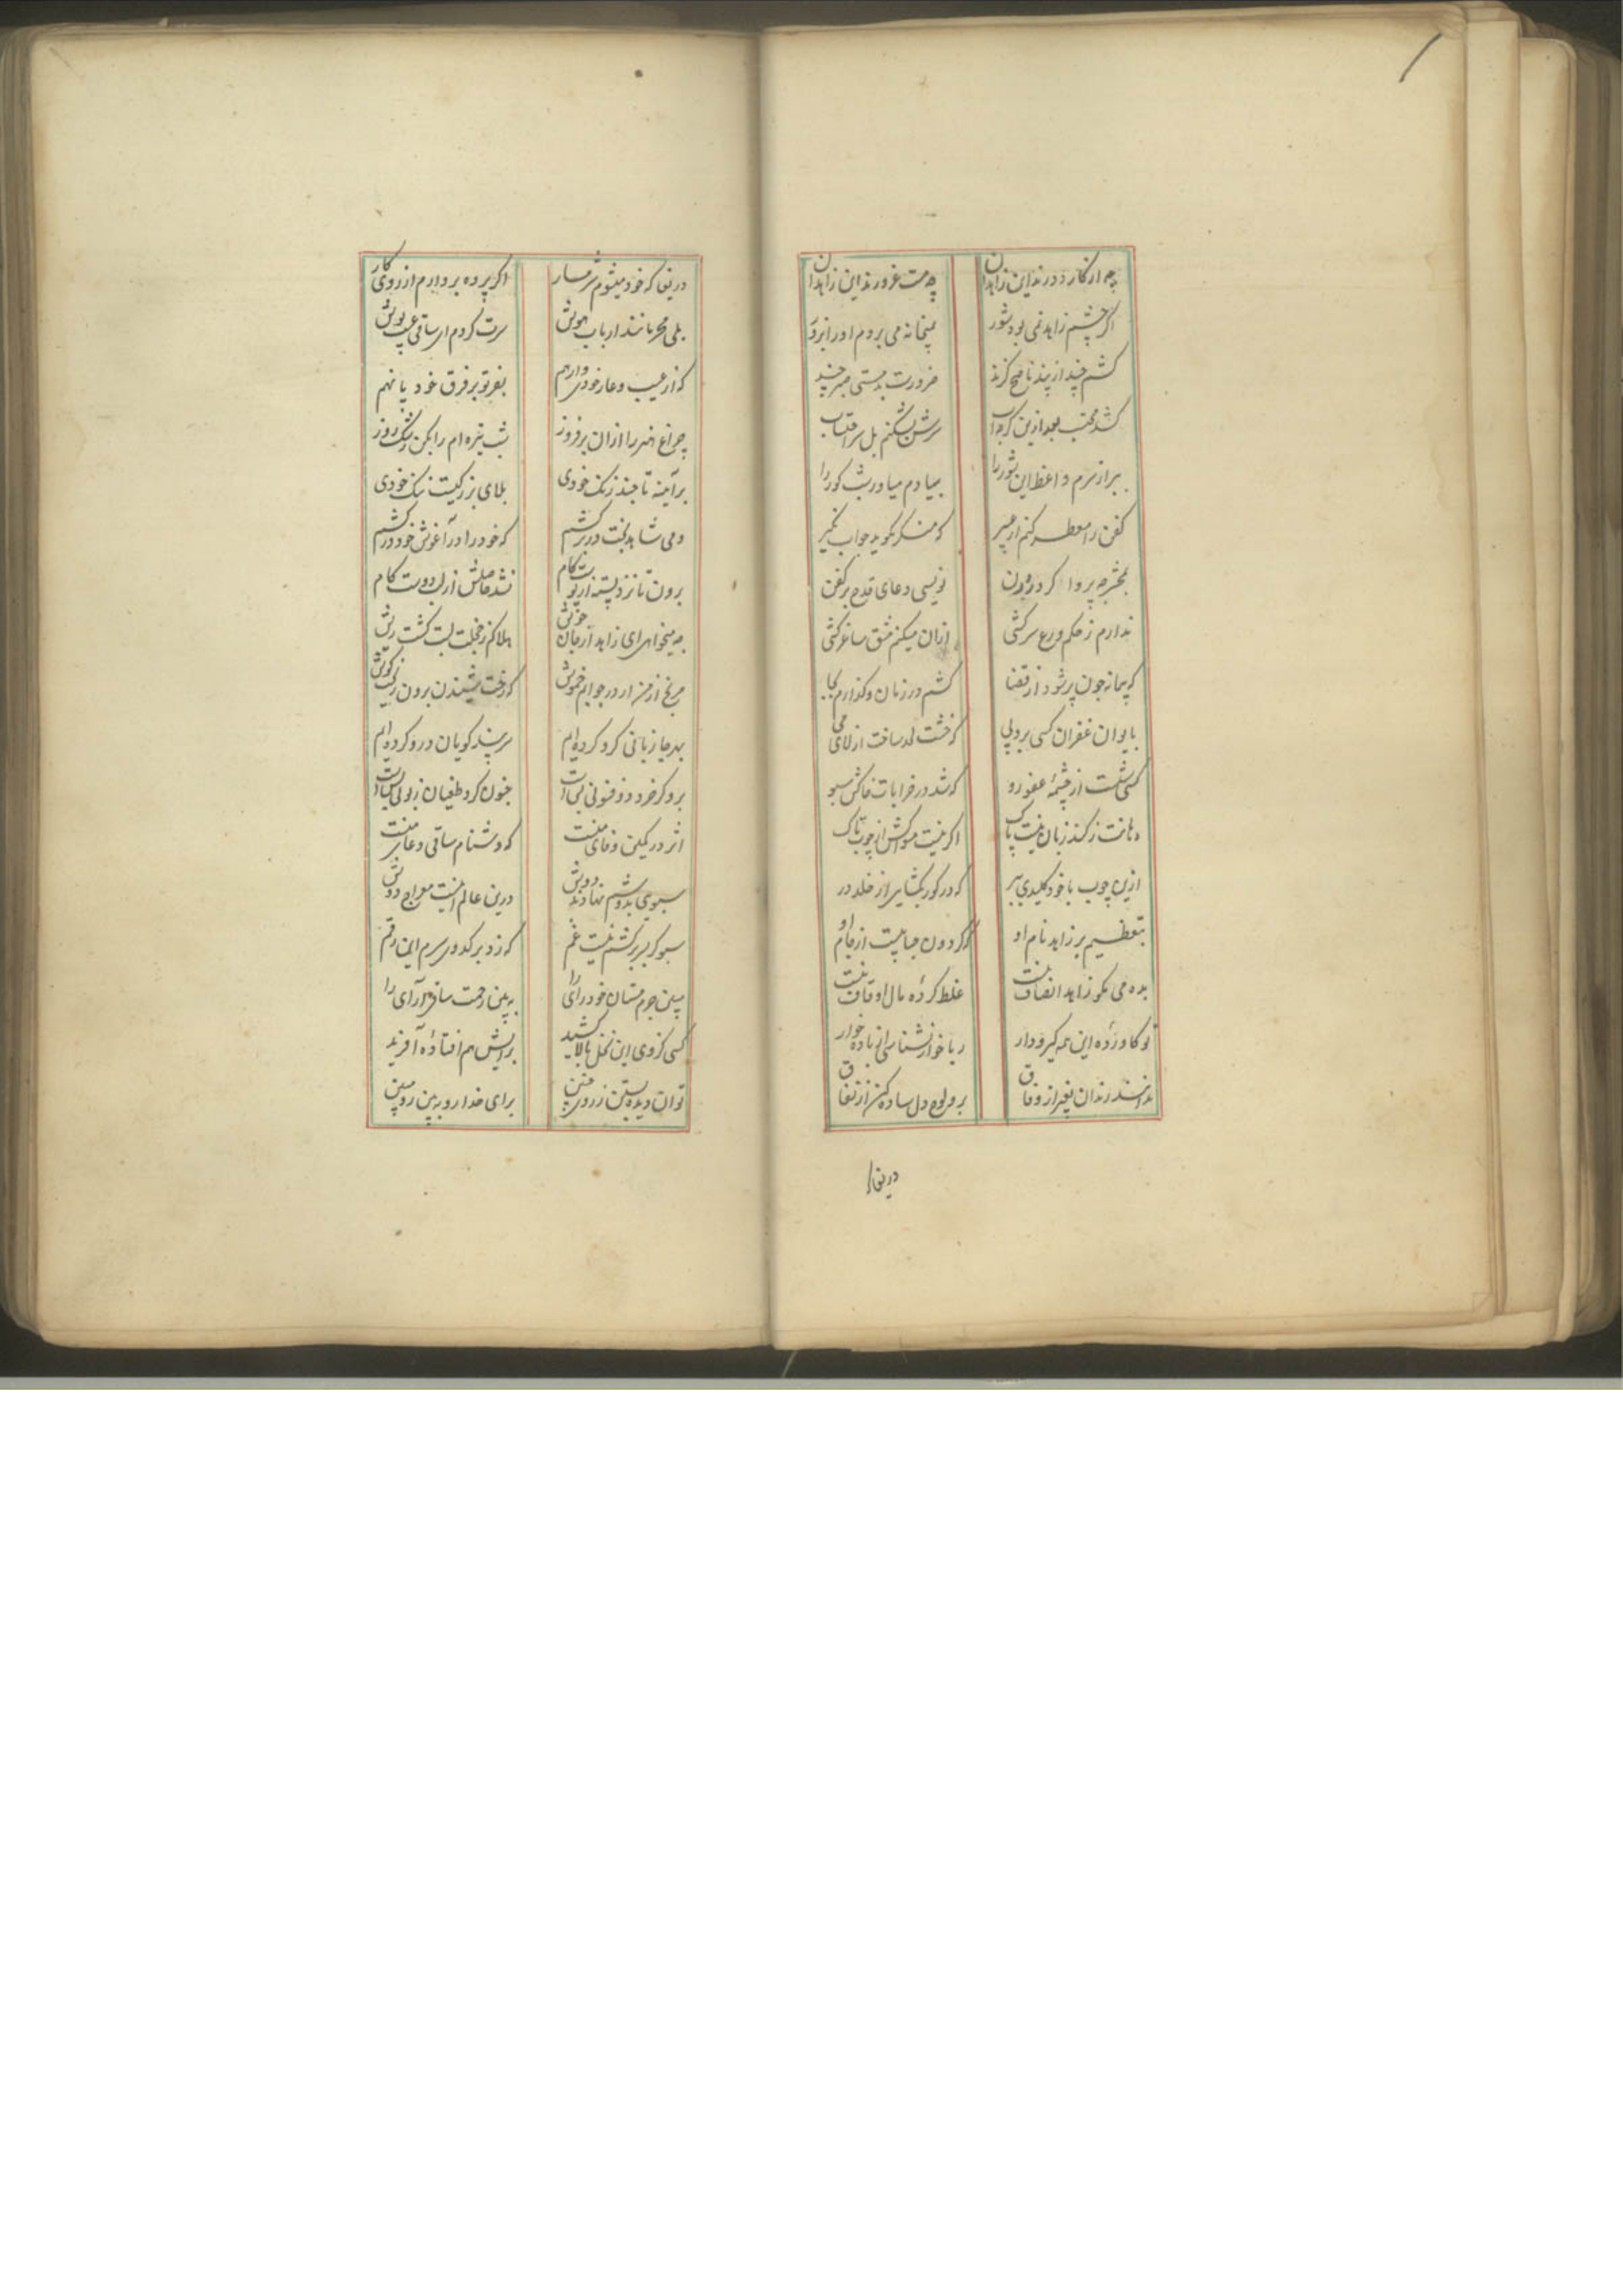 چه از کار دورند این زاهدان
چه مست غرورند این زاهدان
اگر چشم زاهد نمی بود شور
بمیخانه می بردم او را بزور
کشم چند از پند ناصح گزند
ضرورت بدمستی صبر چند
کشد محتسب بعد ازین گر
سرش نشکنم بل سر احتساب
ببر از برم واعظ این شور را
بیادم میاور شب کور را
کفن را معطر کنم از عبیر
که منکر نگوید جواب نکیر
بمحشر چه پروا کر در بدن
نویسی دعای قدح بر کفن
ندارم ز حکم ورع سرکشی
ازان میکنم مشق ساغرکشی
که پیمانه چون پر شود از قضا
کشم در زمان و گذارم بجا
بایوان غفران کسی برد پی
که خشت لحد ساخت از لای می
کسی شست از چشمهٔ عفو رو
که شد در خرابات خاکش سبو
دهانت ز گند زبان نیست پاک
اگر نیست مسواکش از چوب تاک
ازین چوب با خود کلیدی ببر
که در گور بگشایی از خلد در
بتعظیم بر زاهد نام او
که گردون حبابیست از جام او
بده می مگو زاهد انصاف نیست
غلط کردهٔ مال اوقاف نیست
تو کاورده این همه گیرودار
ریا خوار نشناسی از باده خوار
ندانسند رندان بغیر از وفاق
برو لوح دل ساده کن از نفاق
دریغا
دریغا که خود میشوم شرمسار
اگر پرده بردارم از روی کار
بلی محرمانند ارباب هوش
سرت گردم ای ساقی عیب پوش
که از عیب و عار خودی وارهم
بفر تو بر فرق خود پا نهم
چراغ مرا ازان برفروز
شب تیره ام را بکن رشک روز
بر آینه تا چند زنگ خودی
بلای بزرگیست ننگ خودی
دمی شاهد بخت در بر کشم
که خود را در آغوش خود درکشم
برون تا نزد پسته از پوست گام
نشد حاصلش از لب دوست کام
چه میخواهی ای زاهد از جان خویش
هلاکم ز خجلت لبت گشت ریش
مرنج از من ار در جوابم خموش
که رخت شنیدن برون زد ز گوش
بهرجا زبانی گرو کرده ایم
سر پند گویان درو کرده ایم
برو گر خرد ذوفنونی بس است
جنون کرد طغیان زبونی بس است
اثر در کمین وفای منست
که دشنام ساقی دعای منست
سبوی بدوشم نهادند دوش
درین عالم اینست معراج دوش
سبوکش گر نیست غم
که زد بر کدوی سرم این رقم
ببین جرم مستان خود رای را
ببین رحمت ساغر آرای را
کسی کز وی این نخل بالا کشید
برایش هم افتاده آفرید
توان دیده بستن ز روی چنین
برای خدا رو ببین رو ببین